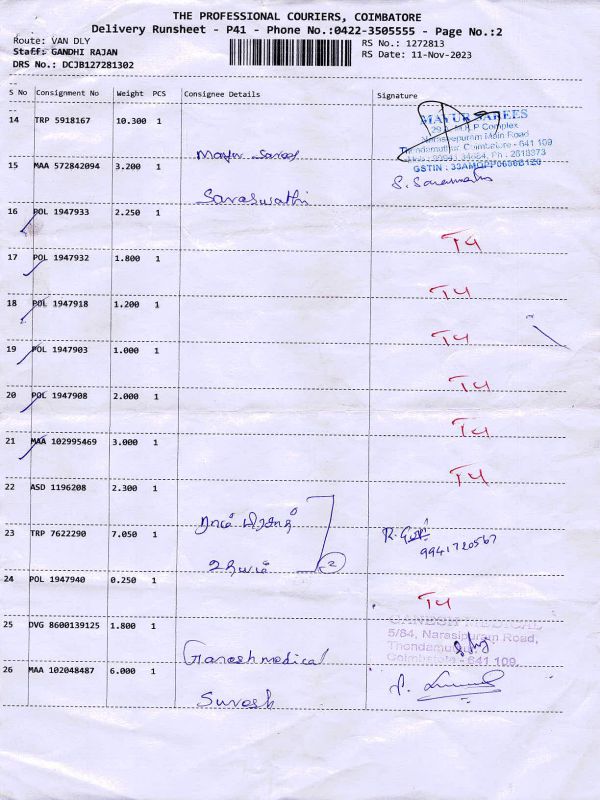 THE PROFESSIONAL COURIERS, COIMBATORE
Delivery Runsheet - P41 - Phone No.:0422-3505555 - Page No.:2
Route: VAN DLY
RS No.: 1272813
Staff: GANDHI RAJAN
RS Date: 11-Nov-2023
DRS No.: DCJB127281302
S No Consignment No Weight PCS Consignee Details Signature
14 TRP 5918167 10.300 1
MAYUR SAREES
Complex
Narasipuram Main Road
Thondamuthur, Coimbatore - 641 109
15 MAA 572842094 3.200 1
Saraswathi
16 POL 1947933 2.250 1
T4
17 POL 1947932 1.800 1
T4
18 POL 1947918 1.200 1
T4
19 POL 1947903 1.000 1
T4
20 POL 1947908 2.000 1
T4
21 MAA 102995469 3.000 1
T4
22 ASD 1196208 2.300 1
23 TRP 7622290 7.050 1
9941720567
24 POL 1947940 0.250 1
T4
25 DVG 8600139125 1.800 1
Ganesh medical
GANESH MEDICAL
5/84, Narasipuram Road,
Coimbatore - 641 109.
26 MAA 102048487 6.000 1
Suresh